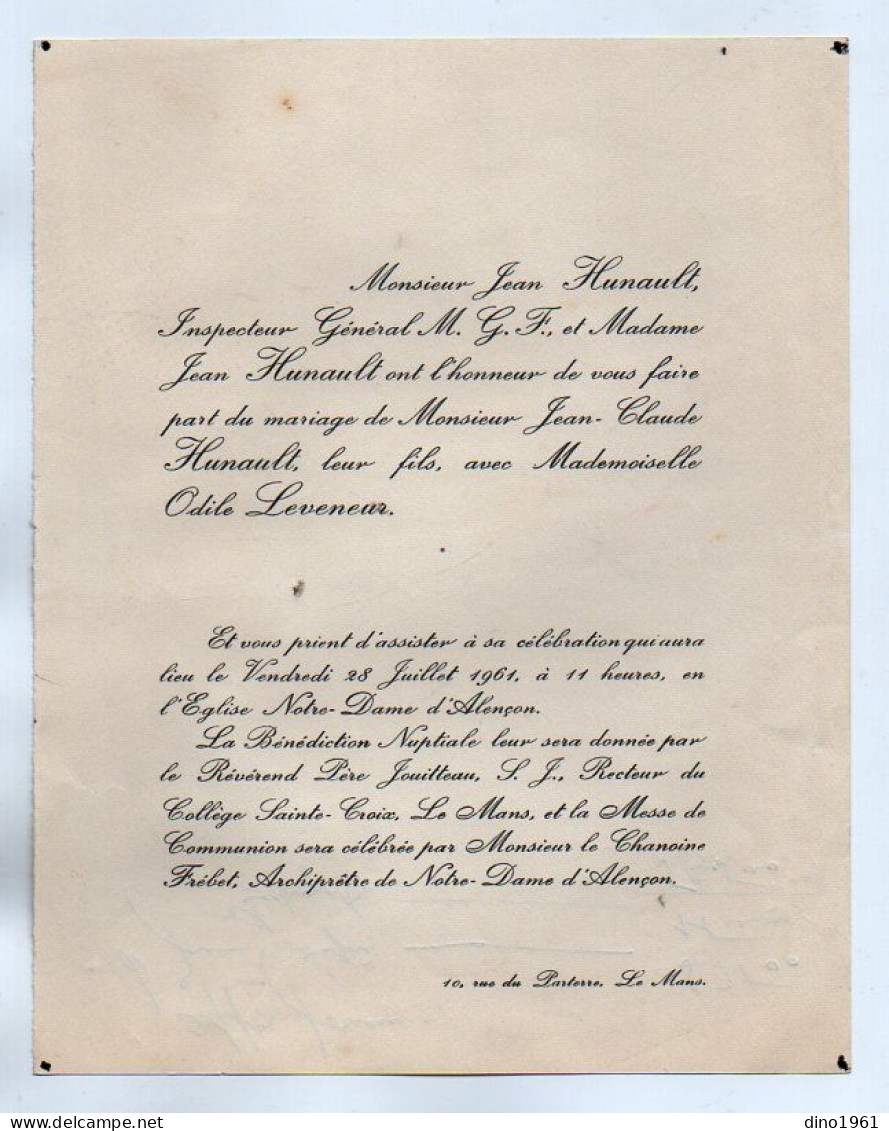 Monsieur Jean Hunault,
Inspecteur Général M. G. F., et Madame
Jean Hunault ont l'honneur de vous faire
part du mariage de Monsieur Jean-Claude
Hunault, leur fils, avec Mademoiselle
Odile Leveneur.
Et vous prient d'assister à sa célébration qui aura
lieu le Vendredi 28 Juillet 1961, à 11 heures, en
l'Eglise Notre-Dame d'Alençon.
La Bénédiction Nuptiale leur sera donnée par
le Révérend Père Jouitteau, S. J., Recteur du
Collège Sainte-Croix, Le Mans, et la Messe de
Communion sera célébrée par Monsieur le Chanoine
Frébet, Archiprêtre de Notre-Dame d'Alençon.
10, rue du Parterre, Le Mans.
delcampe.net
dino1961